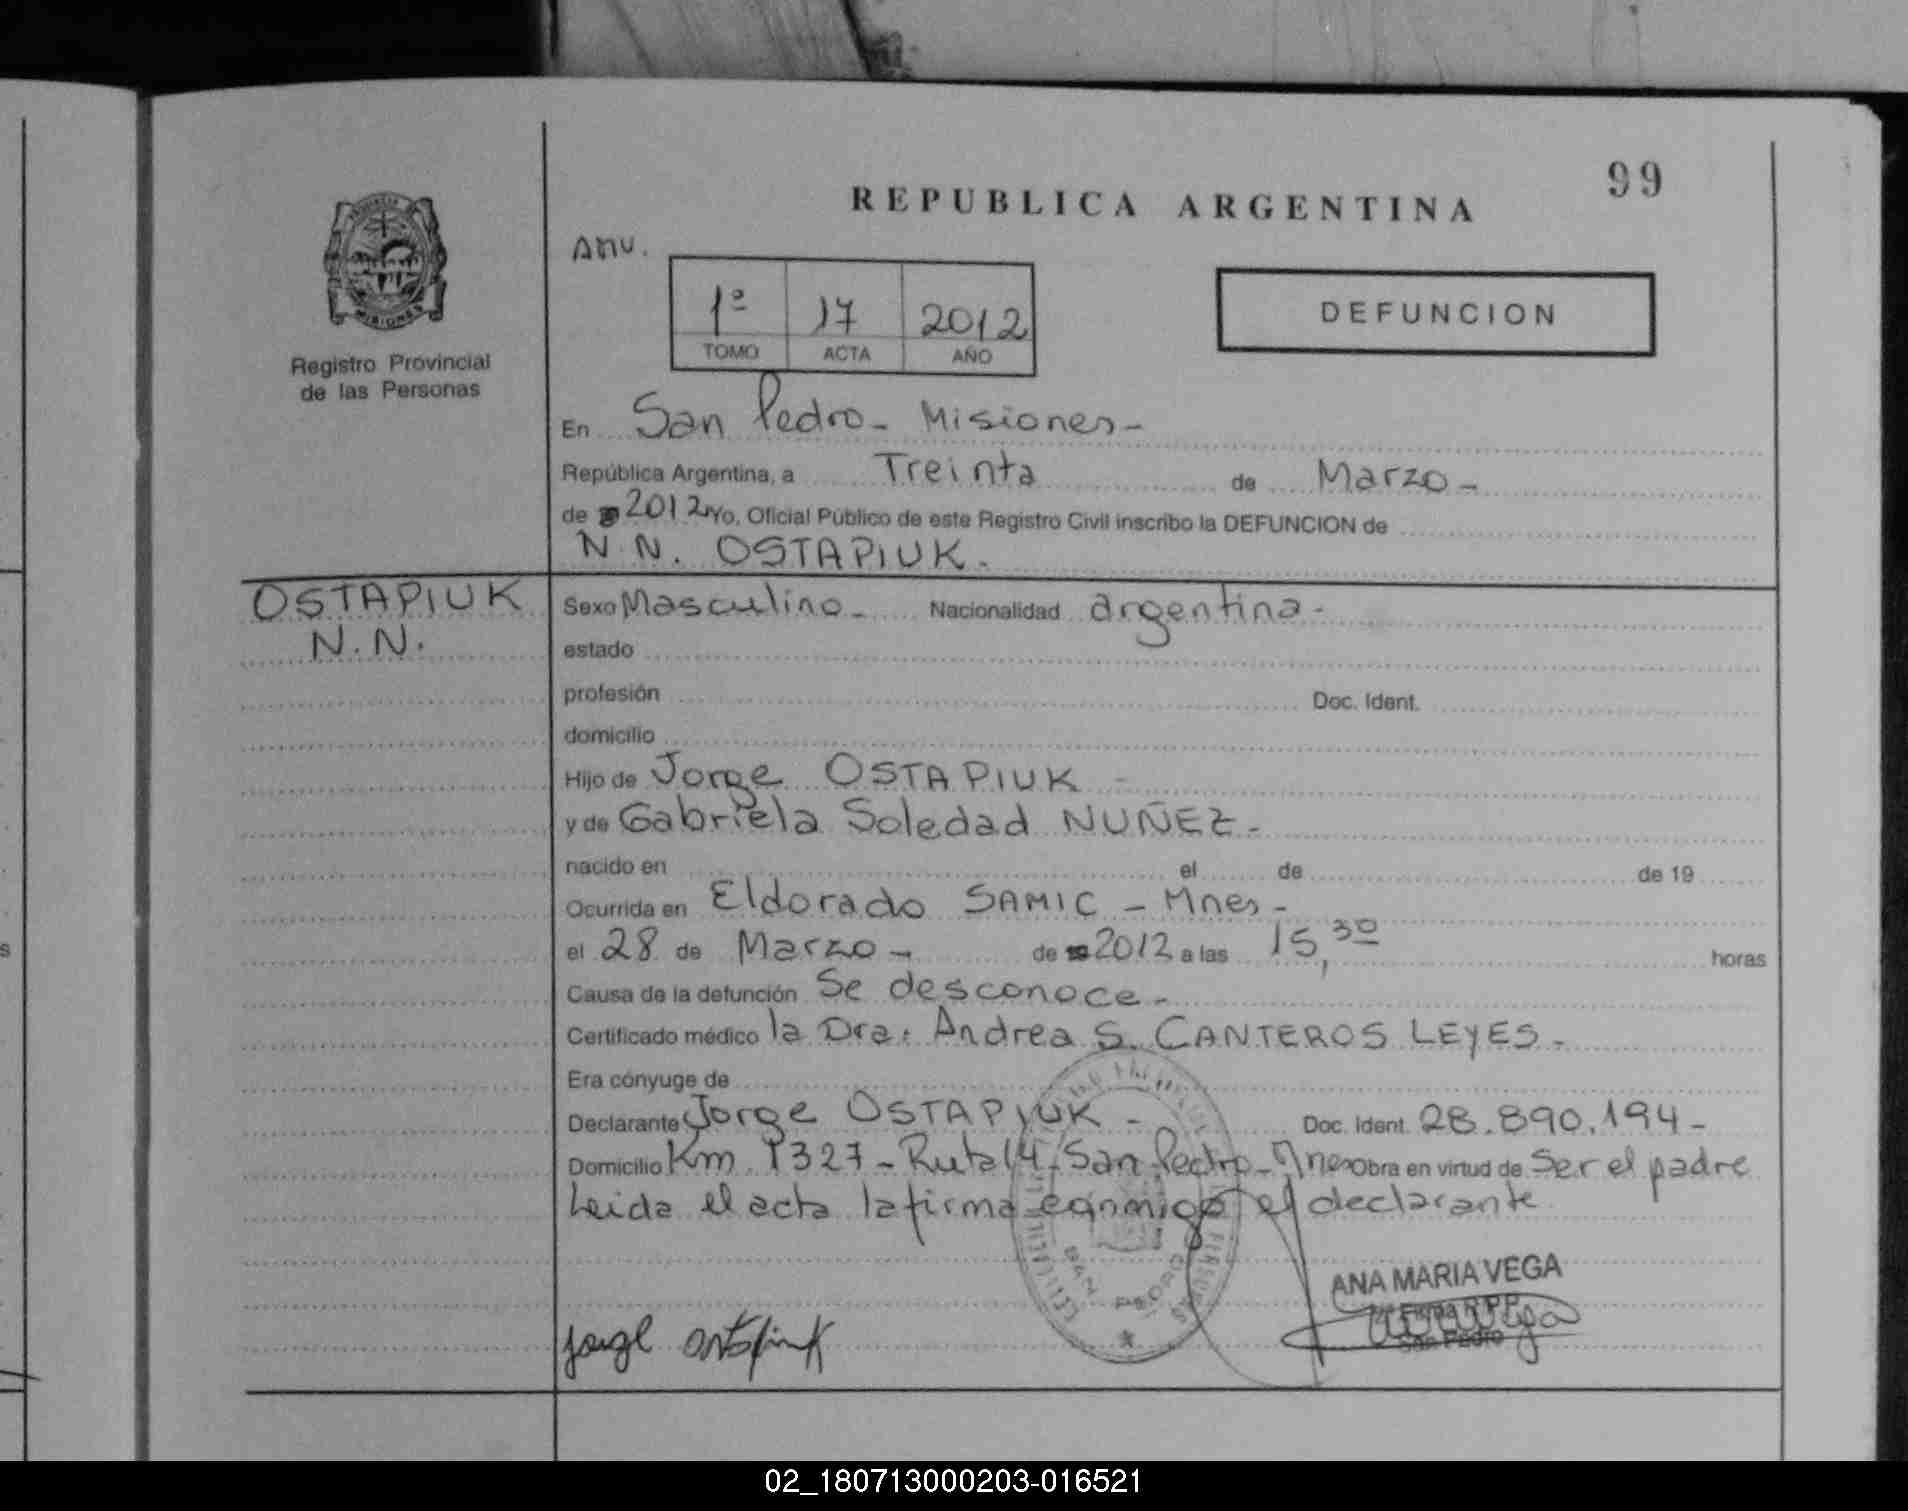 99
REPUBLICA ARGENTINA
ANU.
1º 17 2012
TOMO ACTA AÑO
DEFUNCION
PROVINCIA
MISIONES
Registro Provincial
de las Personas
En San Pedro - Misiones -
República Argentina, a Treinta de Marzo -
de 2012 Yo, Oficial Público de este Registro Civil inscribo la DEFUNCION de
N.N. OSTAPIUK.
OSTAPIUK
N.N.
Sexo Masculino - Nacionalidad argentina -
estado
profesión Doc. Ident.
domicilio
Hijo de Jorge OSTAPIUK -
y de Gabriela Soledad NUÑEZ -
nacido en el de de 19
Ocurrida en Eldorado SAMIC - Mnes -
el 28 de Marzo - de 2012 a las 15,30 horas
Causa de la defunción Se desconoce -
Certificado médico la Dra. Andrea S. CANTEROS LEYES -
Era cónyuge de
Declarante Jorge OSTAPIUK - Doc. Ident. 28.890.194 -
Domicilio Km 1327 - Ruta 14 - San Pedro - Mnes Obra en virtud de Ser el padre
Leida el acta la firma conmigo el declarante
SAN PEDRO
ANA MARIA VEGA
San Pedro
Jorge Ostapiuk
s
02_180713000203-016521